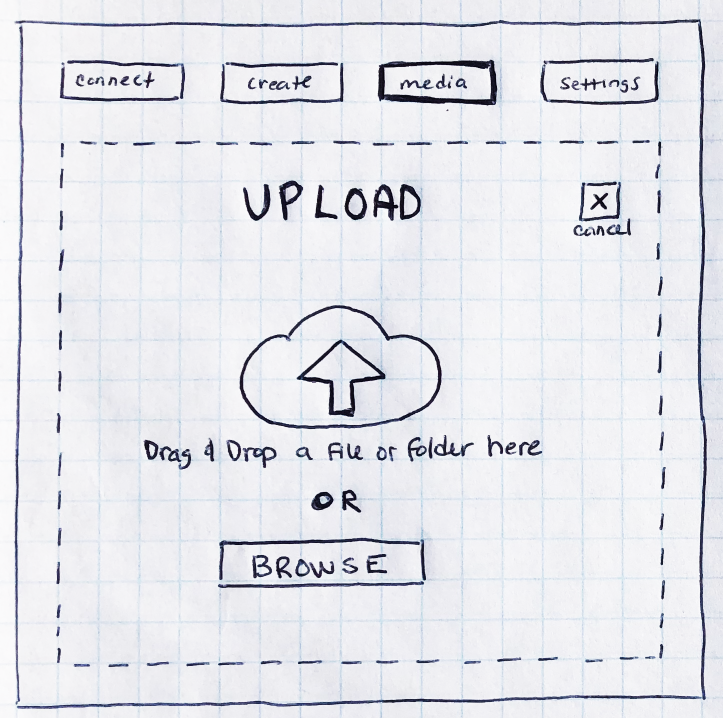 connect create media settings
UPLOAD
X
cancel
Drag & Drop a file or folder here
OR
BROWSE